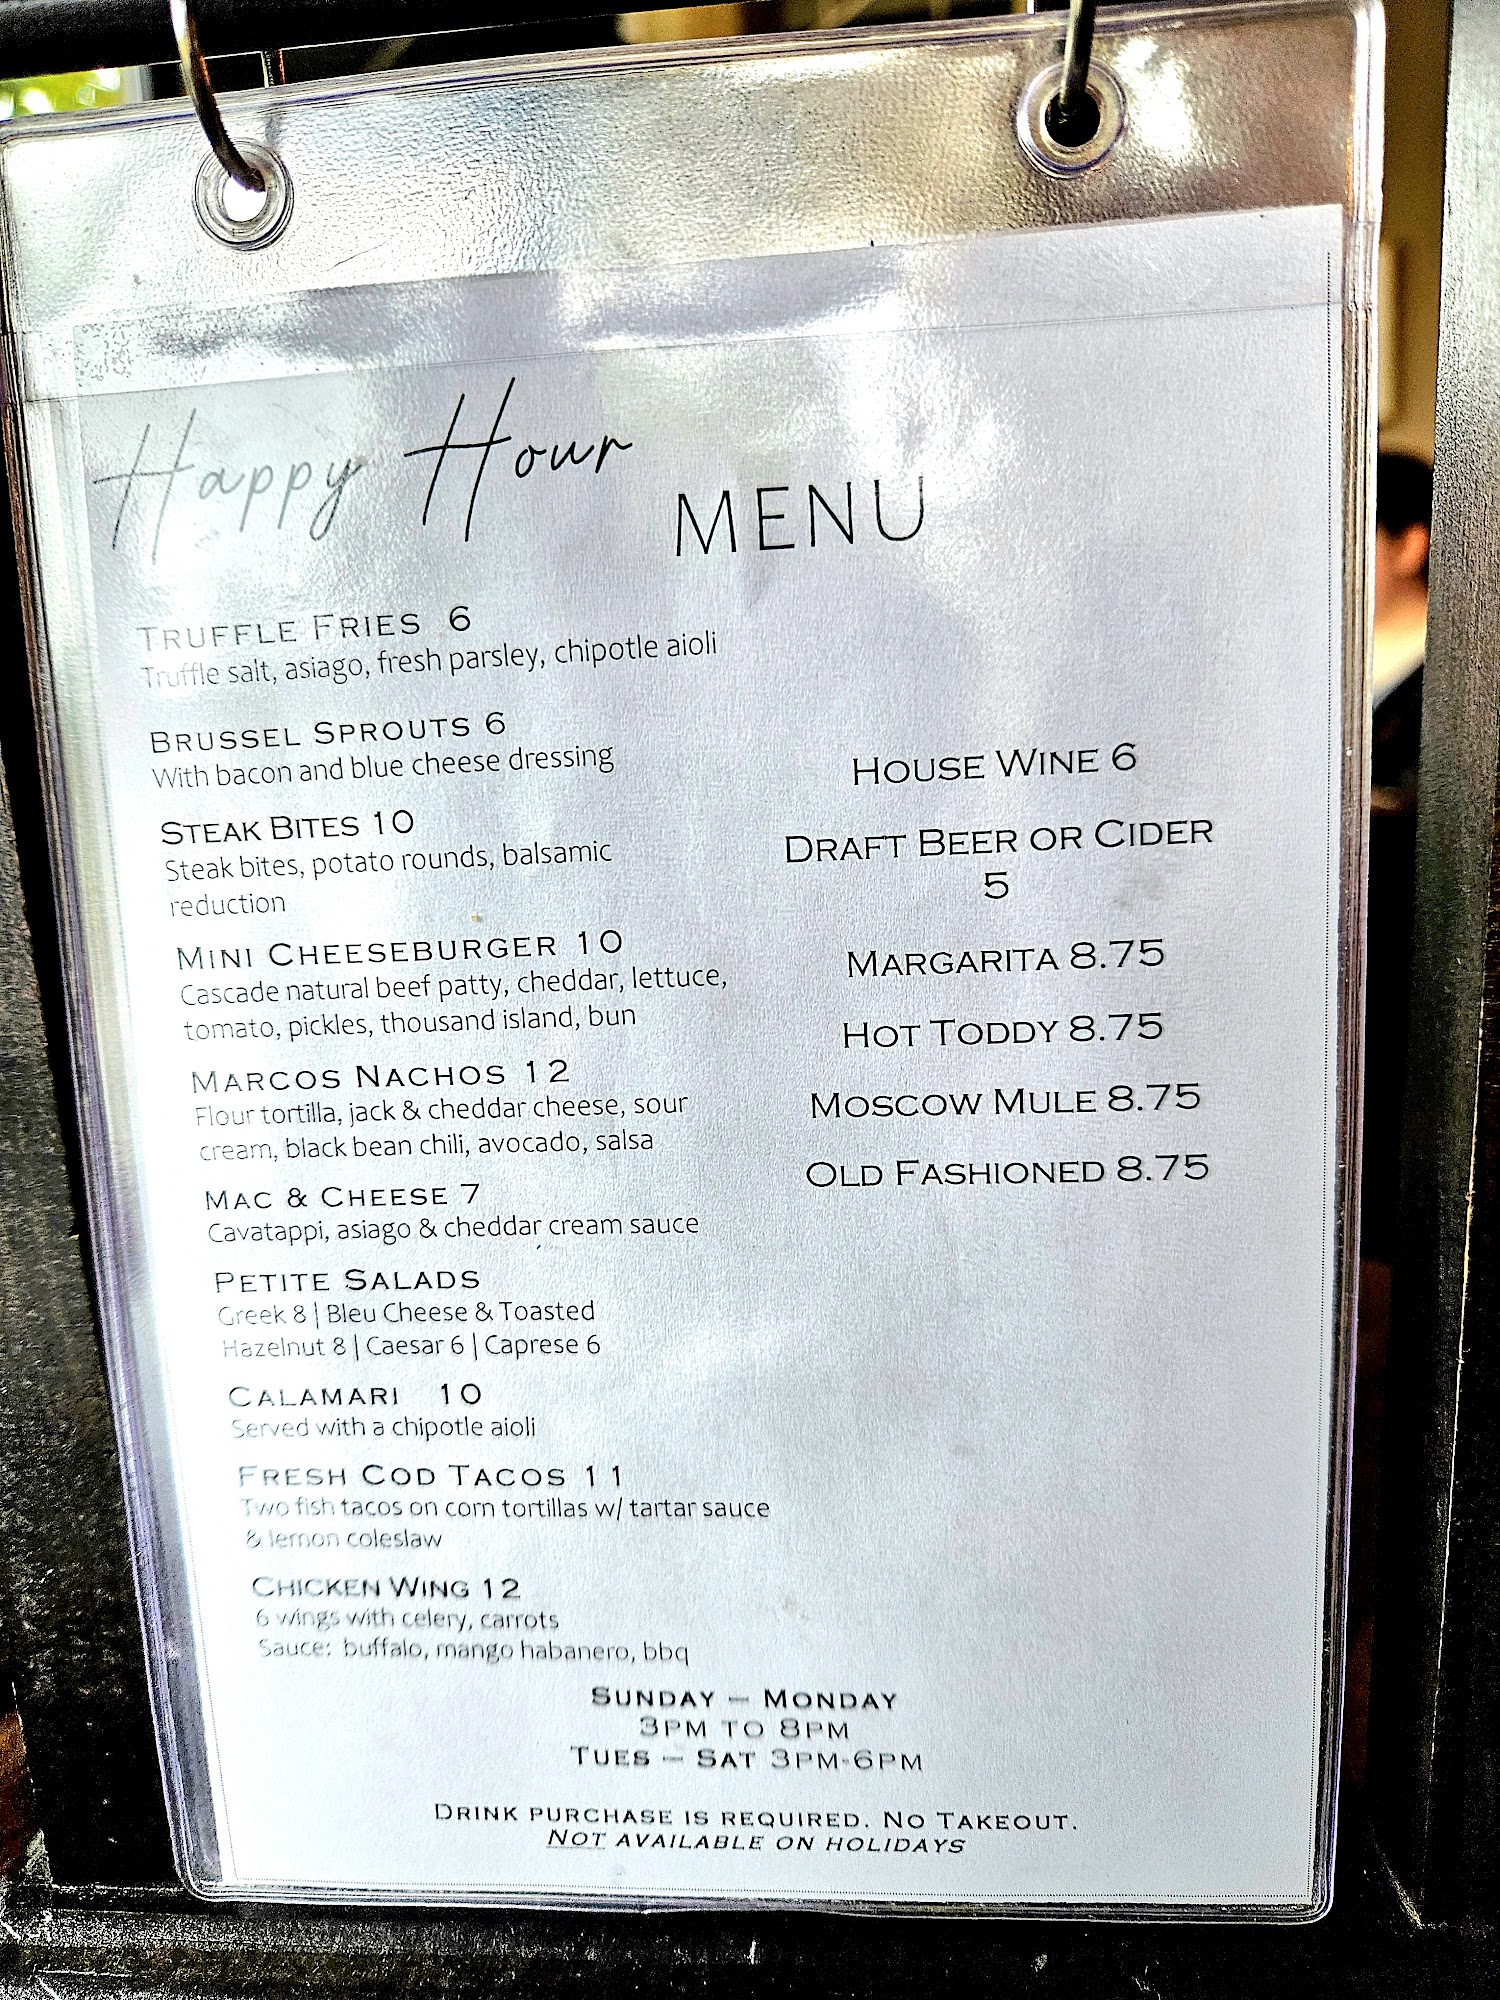 Happy Hour MENU
TRUFFLE FRIES 6
Truffle salt, asiago, fresh parsley, chipotle aioli
BRUSSEL SPROUTS 6
With bacon and blue cheese dressing
STEAK BITES 10
Steak bites, potato rounds, balsamic
reduction
MINI CHEESEBURGER 10
Cascade natural beef patty, cheddar, lettuce,
tomato, pickles, thousand island, bun
MARCOS NACHOS 12
Flour tortilla, jack & cheddar cheese, sour
cream, black bean chili, avocado, salsa
MAC & CHEESE 7
Cavatappi, asiago & cheddar cream sauce
PETITE SALADS
Greek 8 | Bleu Cheese & Toasted
Hazelnut 8 | Caesar 6 | Caprese 6
CALAMARI 10
Served with a chipotle aioli
FRESH COD TACOS 11
Two fish tacos on corn tortillas w/ tartar sauce
& lemon coleslaw
CHICKEN WING 12
6 wings with celery, carrots
Sauce: buffalo, mango habanero, bbq
HOUSE WINE 6
DRAFT BEER OR CIDER
5
MARGARITA 8.75
HOT TODDY 8.75
MOSCOW MULE 8.75
OLD FASHIONED 8.75
SUNDAY – MONDAY
3PM TO 8PM
TUES – SAT 3PM-6PM
DRINK PURCHASE IS REQUIRED. NO TAKEOUT.
NOT AVAILABLE ON HOLIDAYS